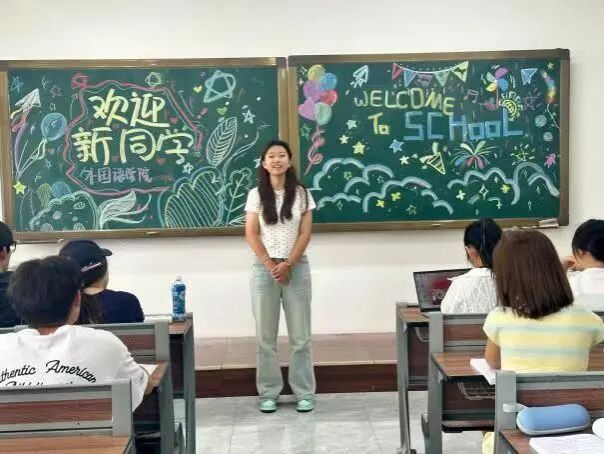 欢迎
新同学
外国语学院
WELCOME
To SCHOOL
Authentic American